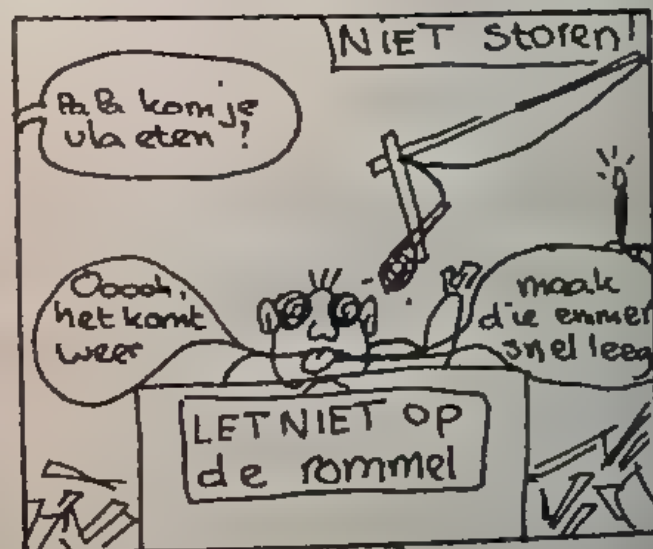 NIET storen!
Pa Pa kom je
vla eten?
Ooooh,
het komt
weer
maak
die emmer
snel leeg
LET NIET op
de rommel